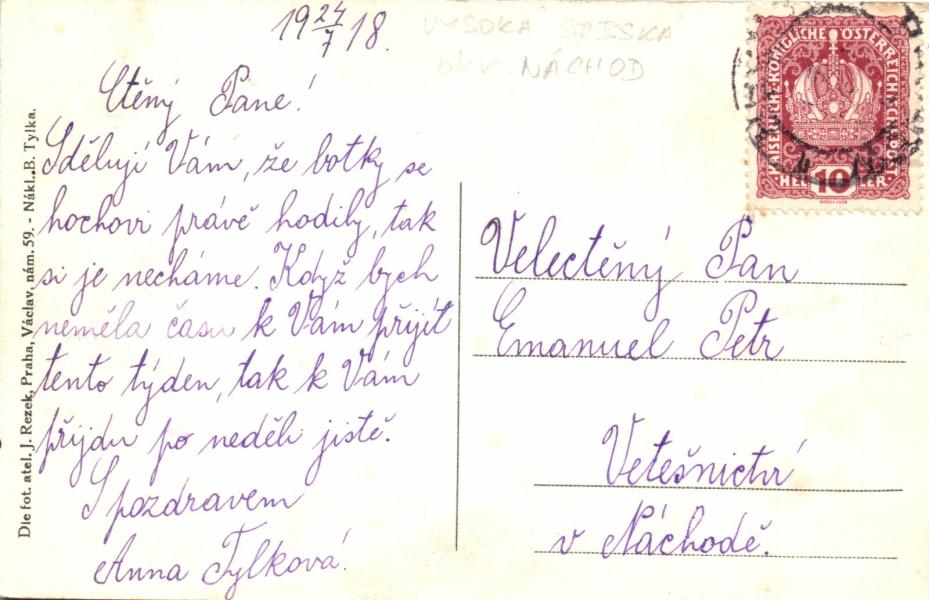 19 24/7 18.
VYSOKÁ SRBSKÁ
okr. NÁCHOD
Ctěný Pane!
Sděluji Vám, že botky se
hochovi právě hodily, tak
si je necháme. Když bych
neměla času k Vám přijít
tento týden, tak k Vám
přijdu po neděli jistě.
S pozdravem
Anna Tylková.
Dle fot. atel. J. Rezek, Praha, Václav. nám. 59. - Nákl. B. Tylka.
KAISERLICHE KÖNIGLICHE ÖSTERREICHISCHE POST
HELLER 10 HELLER
Velectěný Pan
Emanuel Petr
Vetešnictví
v Náchodě.